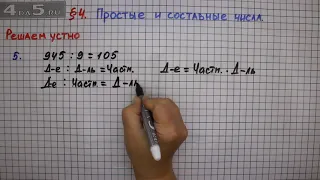 4 ДЛЯ 5.ru
§4. Простые и составные числа.
Решаем устно
5. 945 : 9 = 105
Д-е : Д-ль = Частн. Д-е = Частн. · Д-ль
Д-е : Частн. = Д-ль